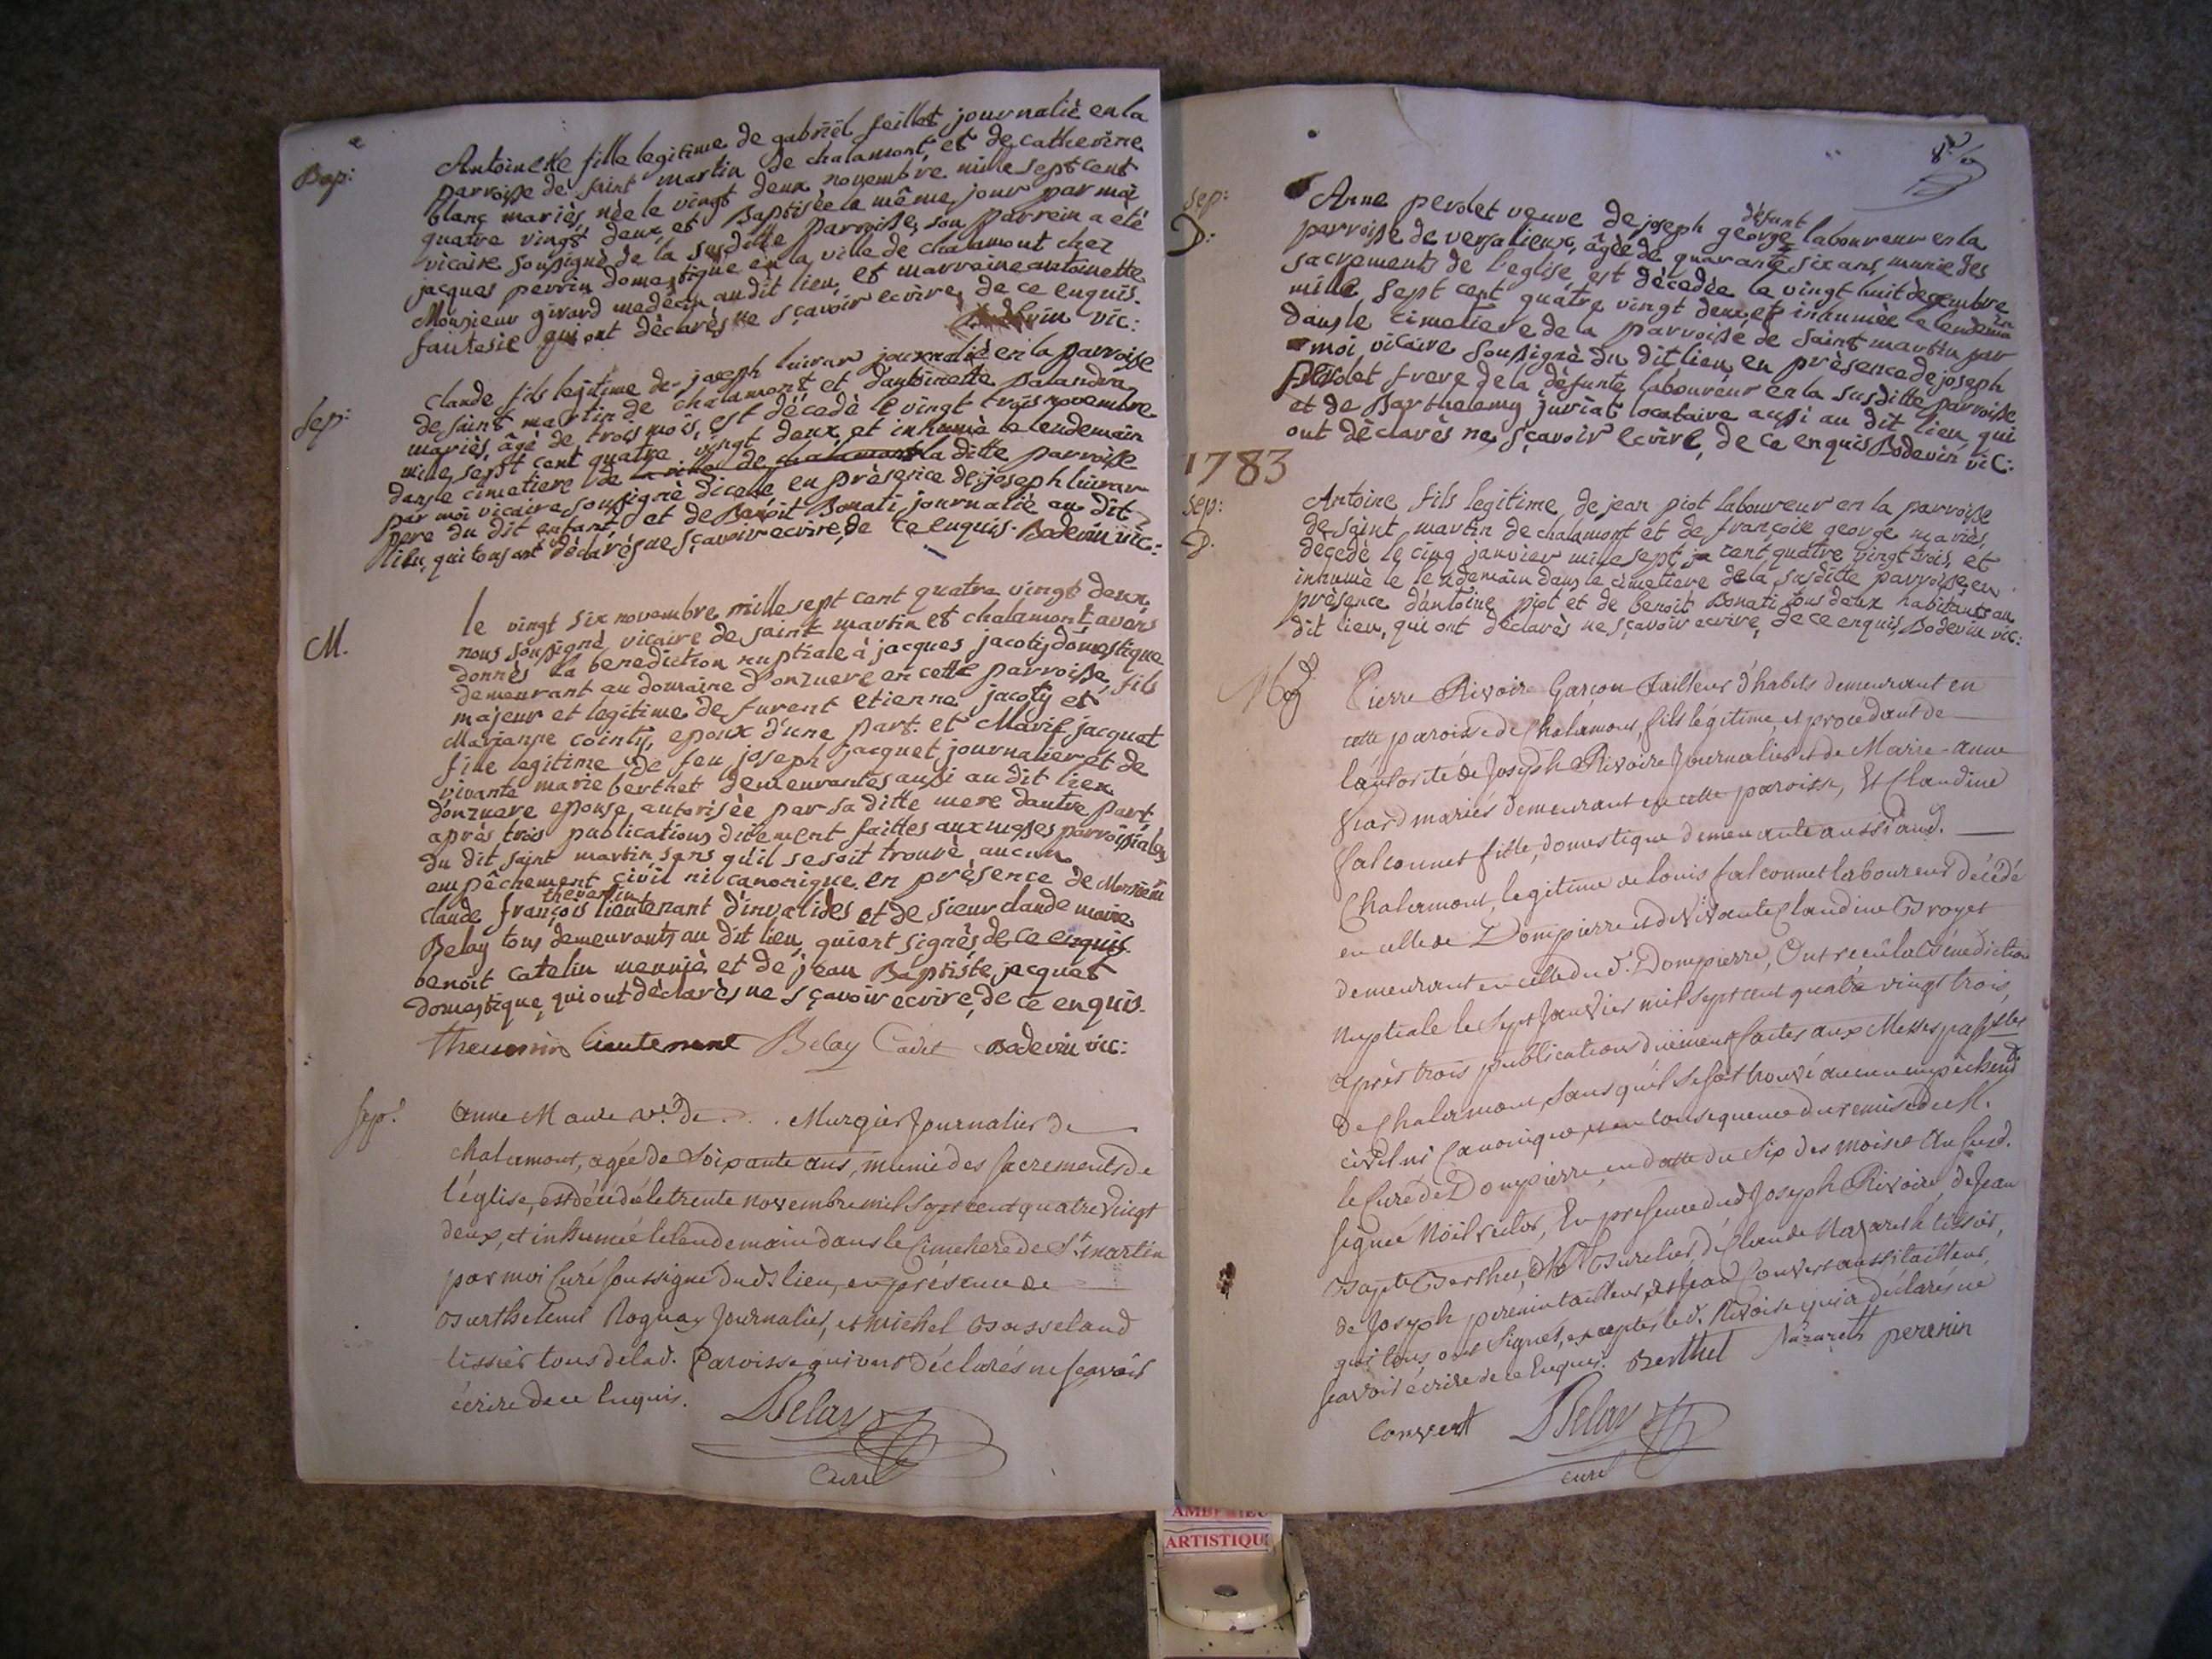 Bap:
Antoinette fille legitime de gabriël feillet journaliè en la
parroisse de saint martin de chalamont et de catherine
blanc mariès, nèe le vingt deux novembre mille sept cent
quatre vingt deux, et Baptisèe le même jour par moi
vicaire soussignè de la susditte parroisse, son parrein a etè
jacques perrin domestique en la ville de chalamont chez
Monsieur girard medecin au dit lieu et marraine antoinette
qui ont dèclarès ne sçavoir ecrire, de ce enquis.
vic:
Sep:
Claude fils legitime de joseph luivar journaliè en la parroisse
de saint martin de chalamont et d'antoinette palandra
mariès, âgè de trois mois, est dècedè le vingt trois novembre
mille sept cent quatre vingt deux et inhumè le lendemain
dans le cimetiere de la ditte parroisse
par moi vicaire soussignè dicelle en prèsence de joseph luivar
pere du dit enfant, et de Benoit Bonati journaliè au dit
lieu, qui tous ont dèclarès ne sçavoir ecrire, de ce enquis. Bodevin vic:
M.
le vingt six novembre mille sept cent quatre vingt deux,
nous soussignè vicaire de saint martin et chalamont avons
donnès la benediction nuptiale à jacques jacoty domestique
demeurant au domaine d'onzuere en cette parroisse, fils
majeur et legitime de furent etienne jacoty et
Marianne cointy, epoux d'une part. et Marie jacquet
fille legitime de feu joseph jacquet journalier et de
vivante marie berthet demeurantes aussi au dit lieu
d'onzuere epouse, autorisèe par sa ditte mere d'autre part,
après trois publications düement faittes aux messes parroissiales
du dit saint martin sans qu'il se soit trouvè aucun
empêchement civil ni canonique. en prèsence de Monsieur
thevenin
claude françois lieutenant d'invalides et de sieur claude marie
Belay tous demeurants au dit lieu, qui ont signès, de ce enquis.
benoit catelin meunië et de jean Baptiste jacquet
domestique, qui ont dèclarès ne sçavoir ecrire, de ce enquis.
thevenin lieutenant Belay Cadet Bodevin vic:
Sep.
Anne Maure ve. de . . . Murgier Journalier de
chalamont, agée de Soixante ans, munie des sacrements de
l'église, est décédé le trente novembre mil sept cent quatre vingt
deux, et inhumée le lendemain dans le Cimetiere de St martin
par moi Curé soussigné dud lieu, en présence de
Berthelemi Roguay Journalier, et michel Boisseland
tissier tous de lad. Paroisse qui ont déclarés ne scavoir
écrire de ce Enquis.
Belay
Curé
Sep:
D:
Anne perdet veuve de joseph george laboureur en la
défunt
parroisse de versalieux, âgèe de quarante six ans, munie des
sacrements de l'eglise, est dècedèe le vingt huit decembre
mille sept cent quatre vingt deux, et inhumèe le lendemain
dans le cimetiere de la parroisse de saint martin par
moi vicaire soussignè du dit lieu, en prèsence de joseph
perdet frere de la dèfunte laboureur en la susditte parroisse
et de Barthelemy juriat locataire aussi au dit lieu, qui
ont dèclarès ne sçavoir ecrire, de ce enquis Bodevin vic:
1783
Sep:
D.
Antoine fils legitime de jean piot laboureur en la parroisse
de saint martin de chalamont et de françoise george mariès,
dècedè le cinq janvier mille sept cent quatre vingt trois, et
inhumè le lendemain dans le cimetiere de la susditte parroisse, en
prèsence d'antoine piot et de benoit Bonati tous deux habitants au
dit lieu, qui ont dèclarès ne sçavoir ecrire, de ce enquis, Bodevin vic:
Pierre Rivoire Garcon Tailleur d'habits demeurant en
cette paroisse de Chalamont, fils légitime et procédant de
l'autorité de Joseph Rivoire Journalier et de Marie-anne
mariés demeurant en cette paroisse, Et Claudine
falconnet fille, domestique demeurante aussi aud.
Chalamont, legitime de Louis falconnet laboureur décédé
en celle de Dompierre et de Vivante Claudine Broyer
demeurant en celle dud. Dompierre, Ont reçu la Bénédiction
Nuptiale le Sept Janvier mil sept cent quatre vingt trois,
après trois publications düement faites aux Messes
de Chalamont, sans qu'il se soit trouvé aucun empêchemt
civil ni Canonique, et en consequence du remise de M.
le Curé de Dompierre, en datte du Six des mois et an susd.
signée En presence dud Joseph Rivoire, de Jean
Bapte Berthet, de Claude Nazareth tissier,
de Joseph perenin tailleur, et Jean Convert aussi tailleur,
qui tous ont signés, excepté le d. Rivoire qui a déclaré ne
scavoir écrire de ce Enquis. Berthet Nazareth perenin
Convert Belay
Curé
AMBERIEU
ARTISTIQU